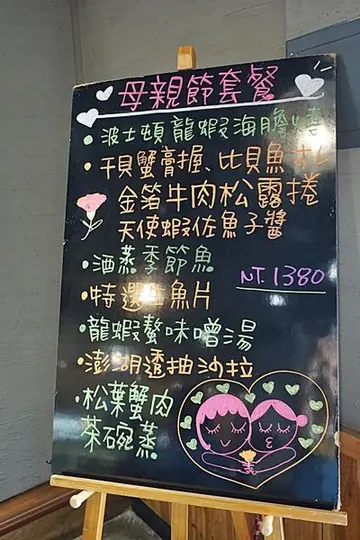 母親節套餐
• 波士頓龍蝦海膽燒
• 干貝蟹膏握、比目魚
金箔牛肉松露捲
天使蝦佐魚子醬
• 酒蒸季節魚
NT. 1380
• 特選生魚片
• 龍蝦螯味噌湯
• 澎湖透抽沙拉
• 松葉蟹肉
茶碗蒸